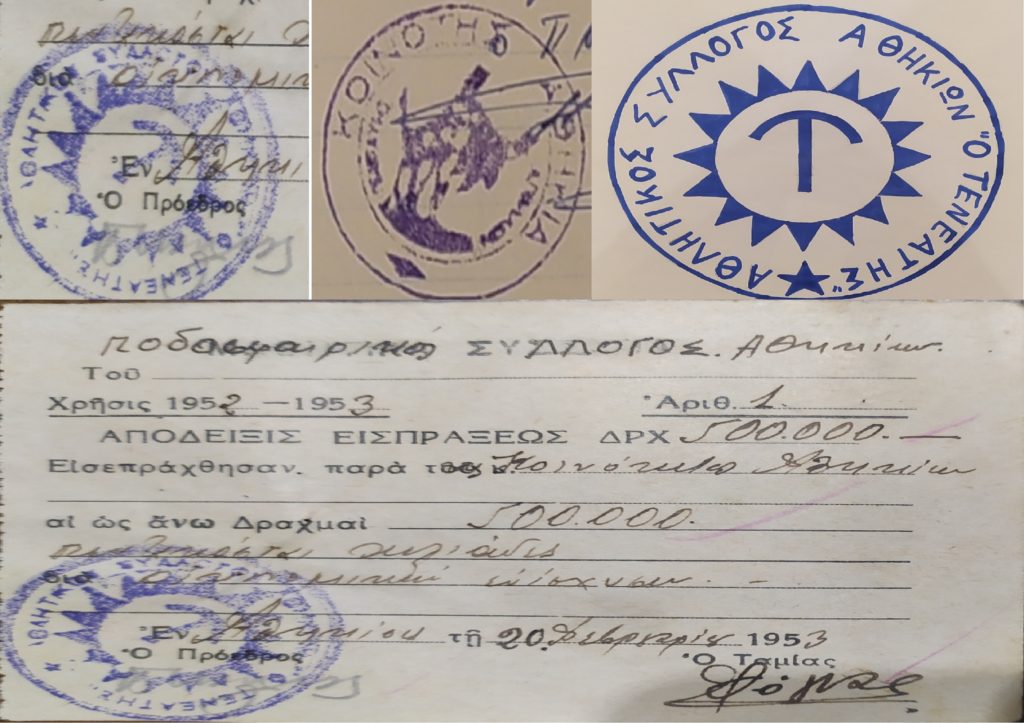 πεντακόσιαι
διὰ οἰκονομικὴ
Ἐν Ἀθηκί
Ὁ Πρόεδρος
ΑΘΛΗΤΙΚ ΣΥΛΛΟΓΟΣ "Ο ΤΕΝΕΑΤΗΣ"
ΚΟΙΝΟΤΗΣ
ΑΘΛΗΤΙΚΟΣ ΣΥΛΛΟΓΟΣ ΑΘΗΚΙΩΝ "Ο ΤΕΝΕΑΤΗΣ"
Τ
Ποδοσφαιρικός ΣΥΛΛΟΓΟΣ. Αθηκίων.
Τοῦ
Χρῆσις 1952 - 1953
Ἀριθ. 1
ΑΠΟΔΕΙΞΙΣ ΕΙΣΠΡΑΞΕΩΣ ΔΡΧ 500.000.—
Εἰσεπράχθησαν παρὰ Κοινότητος Αθηκίων
αἱ ὡς ἄνω Δραχμαὶ 500.000.
πεντακόσιαι χιλιάδες
διὰ οἰκονομικὴν ἐνίσχυσιν. -
Ἐν Ἀθηκίοις τῇ 20 Φεβρουαρίου 1953
Ὁ Πρόεδρος
Ὁ Ταμίας
ΤΕΝΕΑΤΗΣ"